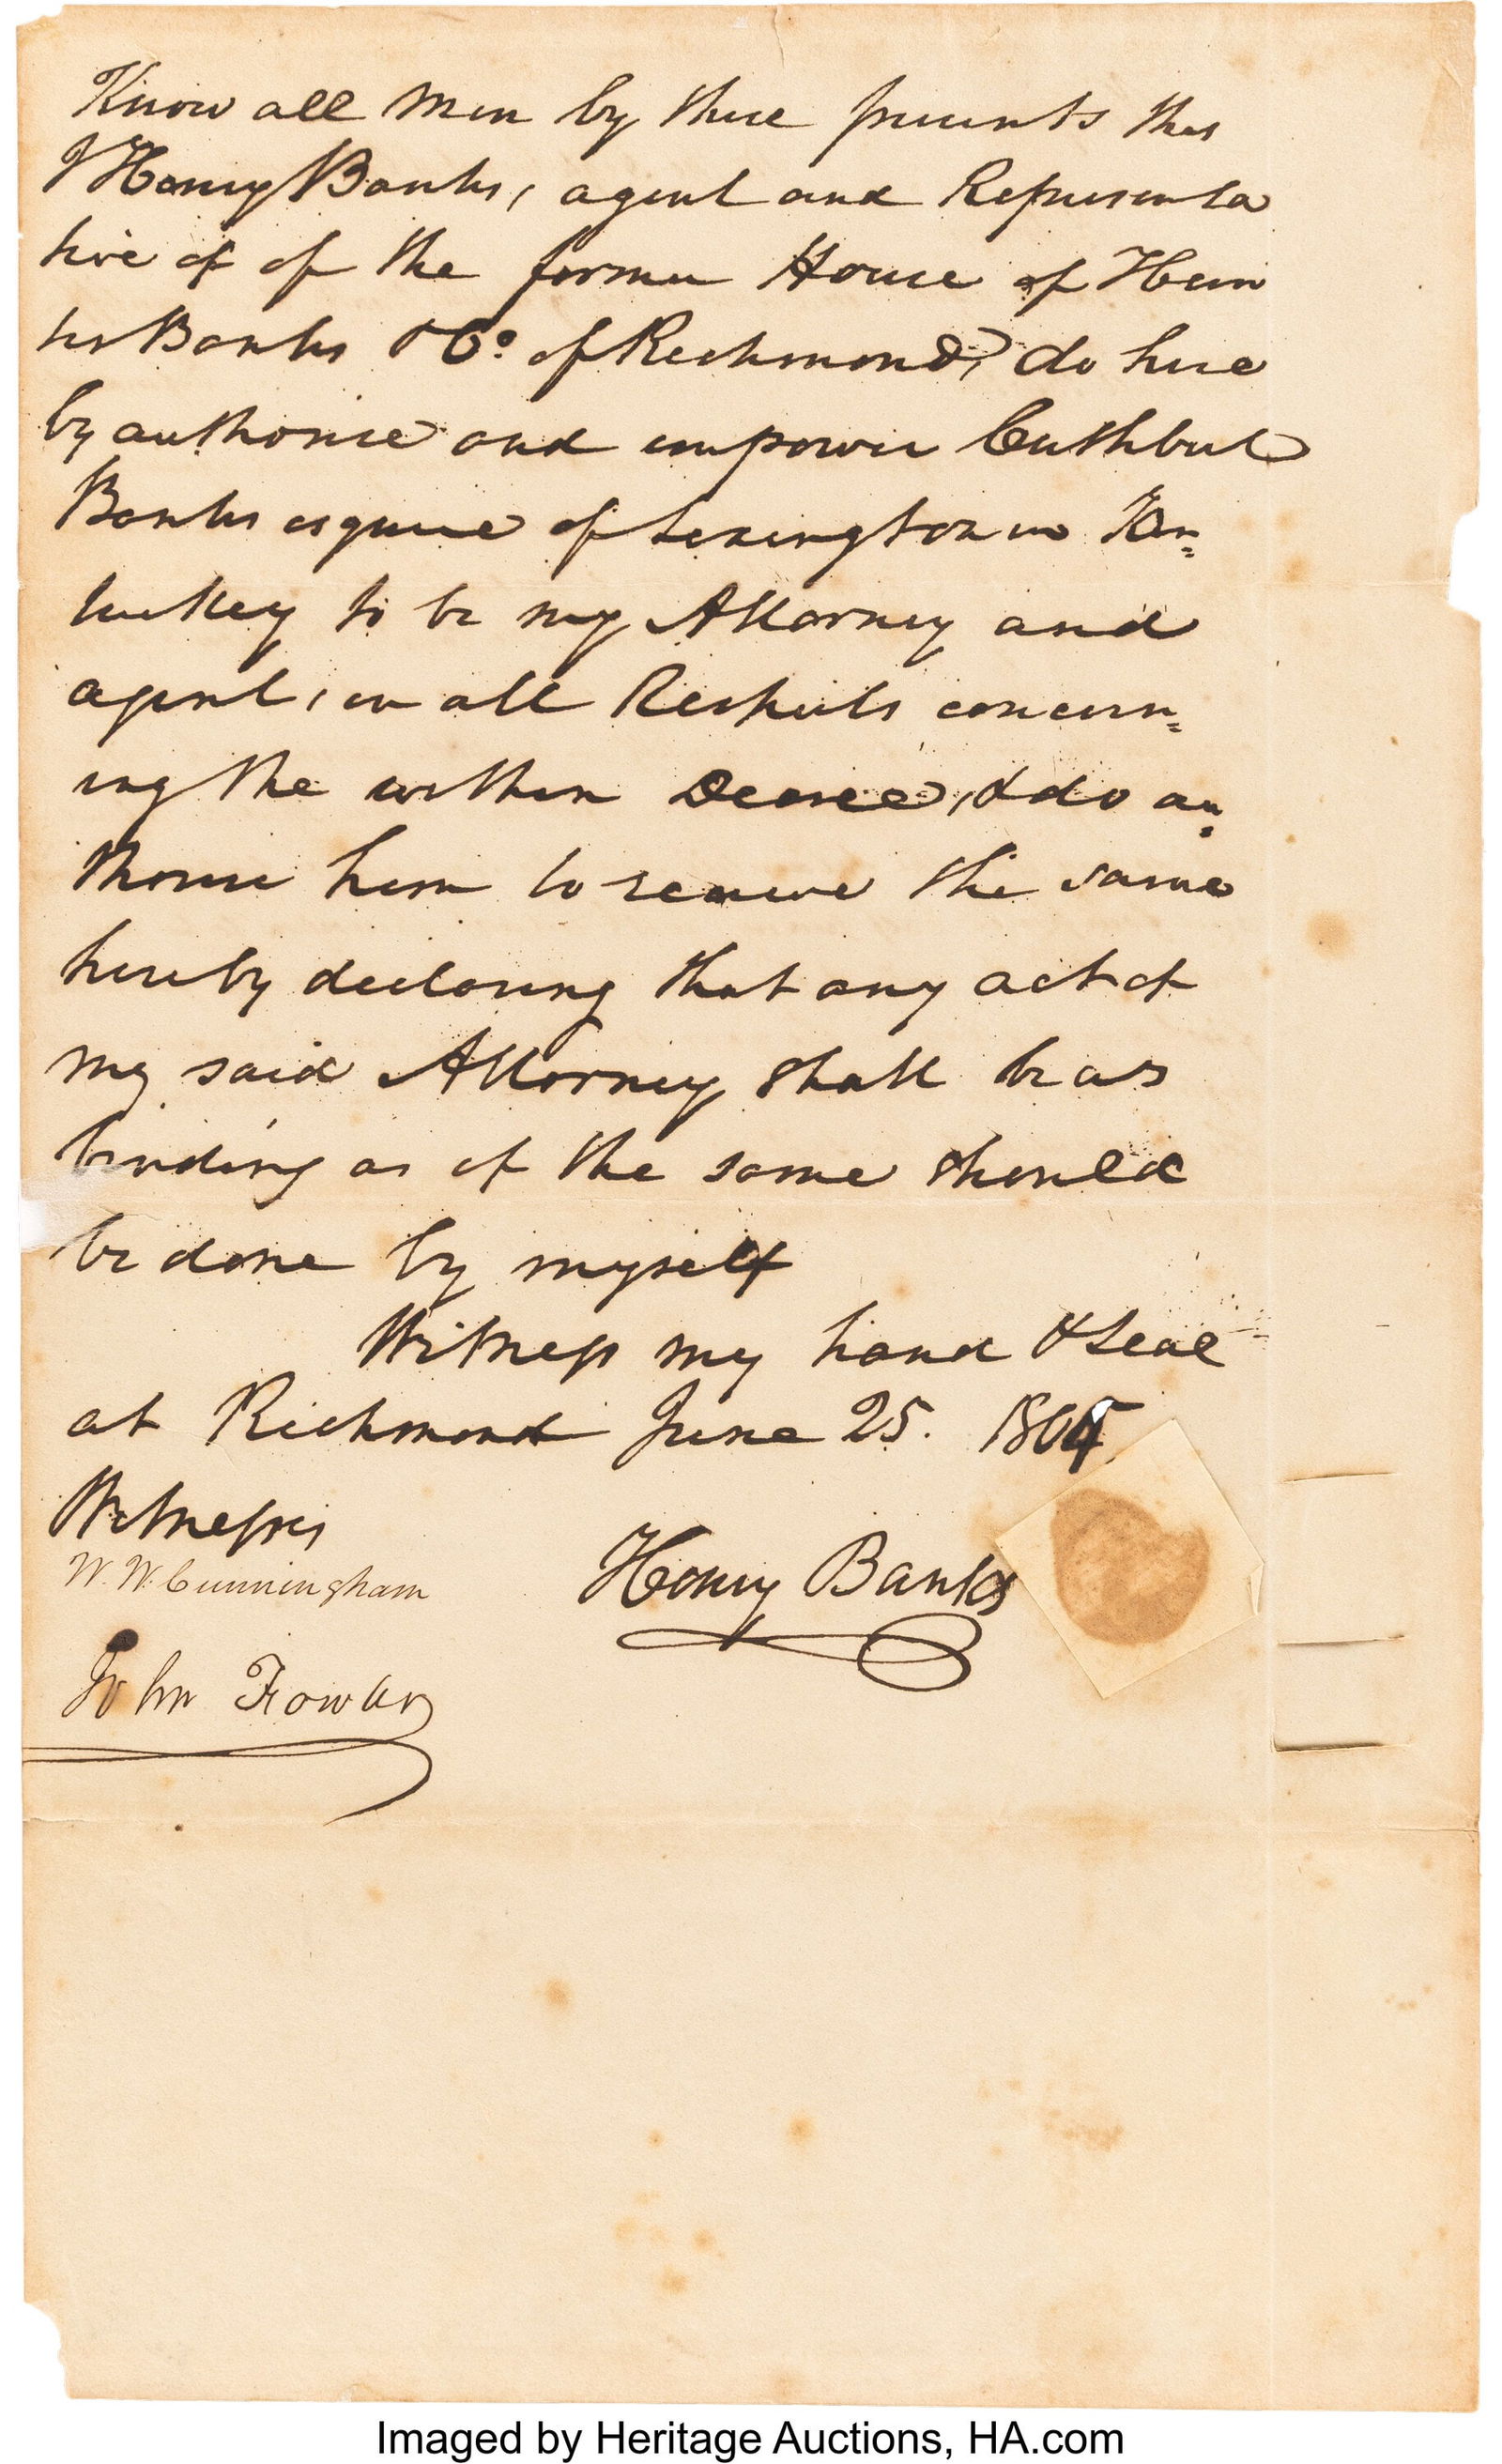 Know all men by these presents that
I Henry Banks, agent and Representa
tive of of the former House of Hun
ter Banks & Co. of Richmond, do here
by authorise and empower Cuthbert
Banks esquire of Lexington in Ken=
tuckey to be my Attorney and
agent, in all Respects concern=
ing the within Decree, & do au=
thorise him to receive the same
hereby declaring that any act of
my said Attorney shall be as
binding as if the same should
be done by myself
Witness my hand & seal
at Richmond June 25. 1805
Witnesses
W. W. Cunningham
Henry Banks
John Fowler
Imaged by Heritage Auctions, HA.com